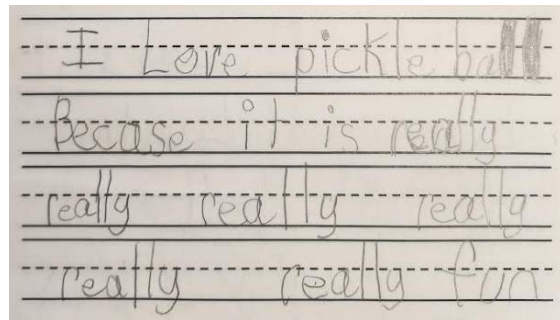 I Love pickle ball
Becase it is really
really really really
really really fun